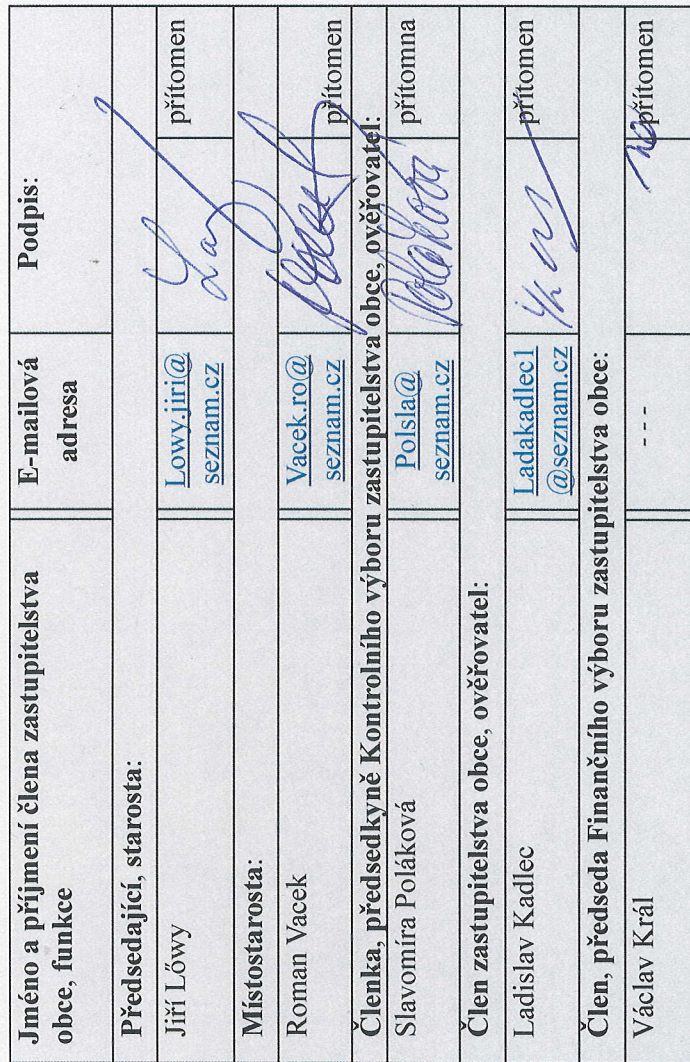 Jméno a příjmení člena zastupitelstva obce, funkce
E-mailová adresa
Podpis:
Předsedající, starosta:
Jiří Lőwy
Lowy.jiri@
seznam.cz
přítomen
Místostarosta:
Roman Vacek
Vacek.ro@
seznam.cz
přítomen
Členka, předsedkyně Kontrolního výboru zastupitelstva obce, ověřovatel:
Slavomíra Poláková
Polsla@
seznam.cz
Poláková
přítomna
Člen zastupitelstva obce, ověřovatel:
Ladislav Kadlec
Ladakadlec1
@seznam.cz
přítomen
Člen, předseda Finančního výboru zastupitelstva obce:
Václav Král
- - -
přítomen